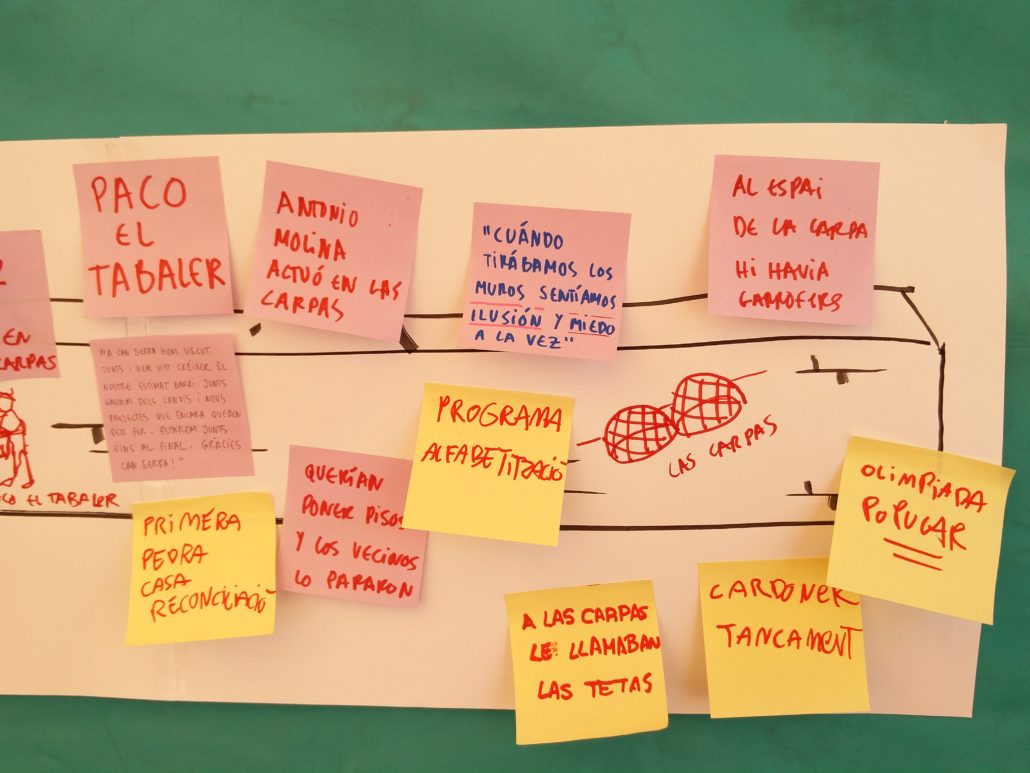 EN
CARPAS
PACO
EL
TABALER
ANTONIO
MOLINA
ACTUÓ EN LAS
CARPAS
"CUÁNDO
TIRÁBAMOS LOS
MUROS SENTÍAMOS
ILUSIÓN Y MIEDO
A LA VEZ"
AL ESPAI
DE LA CARPA
HI HAVIA
GARROFERS
"A CAN SERRA HEM VISCUT
JUNTS I HEM VIST CRÉIXER EL
NOSTRE ESTIMAT BARRI JUNTS
GAUDIM DELS CANVIS I NOUS
PROJECTES QUE ENCARA QUEDEN
PER FER. ESTAREM JUNTS
FINS AL FINAL. GRÀCIES
CAN SERRA!"
EL TABALER
PRIMERA
PEDRA
CASA
RECONCILIACIÓ
QUERÍAN
PONER PISOS
Y LOS VECINOS
LO PARARON
PROGRAMA
ALFABETITZACIÓ
LAS CARPAS
A LAS CARPAS
LE LLAMABAN
LAS TETAS
CARDONER
TANCAMENT
OLIMPIADA
POPULAR